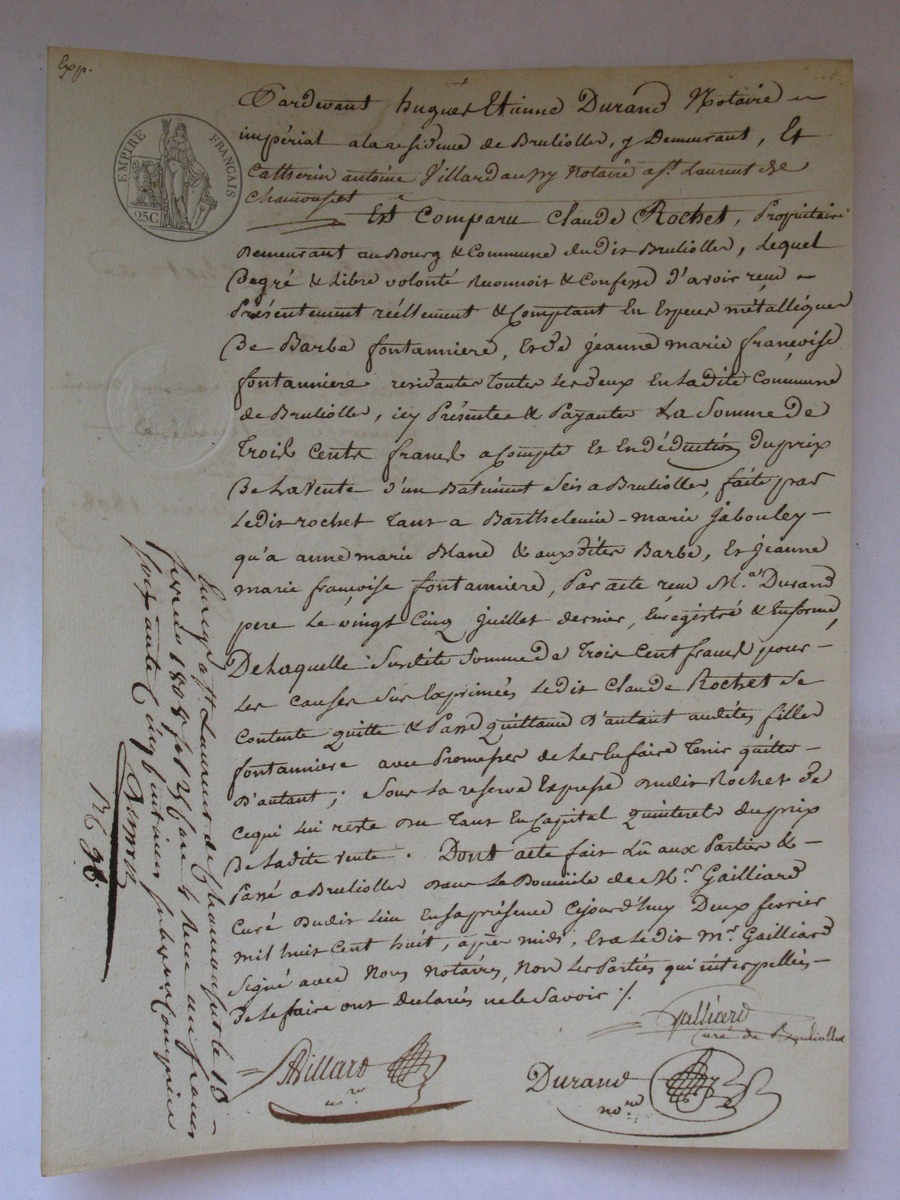 Exp.
EMPIRE FRANÇAIS
25C
Pardevant hugues Etienne Durand Notaire
impérial a la residence de Brulioller, y Demeurant, Et
Catherin antoine Villard aussy Notaire a St. Laurent de
Chamousset
Est Comparu Claude Rochet, Propriétaire
Demeurant au Bourg & Commune dudit Brulioller, Lequel
De gré & Libre volonté Reconnoit & Confesse D'avoir reçu
Présentement réèllement & Comptant En Especes métalliques
De Barbe fontanniere, Et de jeanne marie françoise
fontanniere residantes toutes Les deux En Ladite Commune
de Brulioller, icy Présentes & Payantes La Somme de
Trois Cents francs a Compte Et En Déduction du prix
De La vente D'un Batiment Scis a Brulioller, faite par
Ledit rochet Tant a Barthelemie-marie jabouley
qu'a anne marie Blanc & auxdites Barbe, Et jeanne
marie françoise fontanniere, Par acte reçu M.e Durand
pere Le vingt Cinq juillet dernier, Enregistré & En forme,
De Laquelle Susdite Somme de Trois Cent francs pour
Les Causes Sus Exprimées Ledit Claude Rochet Se
Contente quitte & Passe Quittance D'autant audites filles
fontanniere avec Promesses de Les En faire Tenir quittes
D'autant; Sous La reserve Expresse Dudit Rochet De
Ce qui Lui reste du Tant En Capital qu'interets du prix
De Ladite vente. Dont acte fait Lû aux Parties &
Passé a Brulioller dans Le Domicile de M.r Gailliard
Curé Dudit Lieu En Sa présence Cejourd'huy Deux fevrier
mil huit Cent huit, après midi, Et a Ledit M.r Gailliard
Signé avec Nous Notaires, Non Les Parties qui interpellées
De Le faire ont Declarés ne le Savoir ./.
Galliard
curé de Brulioller
Villard
no.re
Durand
no.re
Enreg.é a St Laurent de Chamousset le 10
fevrier 1808 f.o 126 Case 4 Reçu un franc
soixante Cinq centimes subvon Comprise